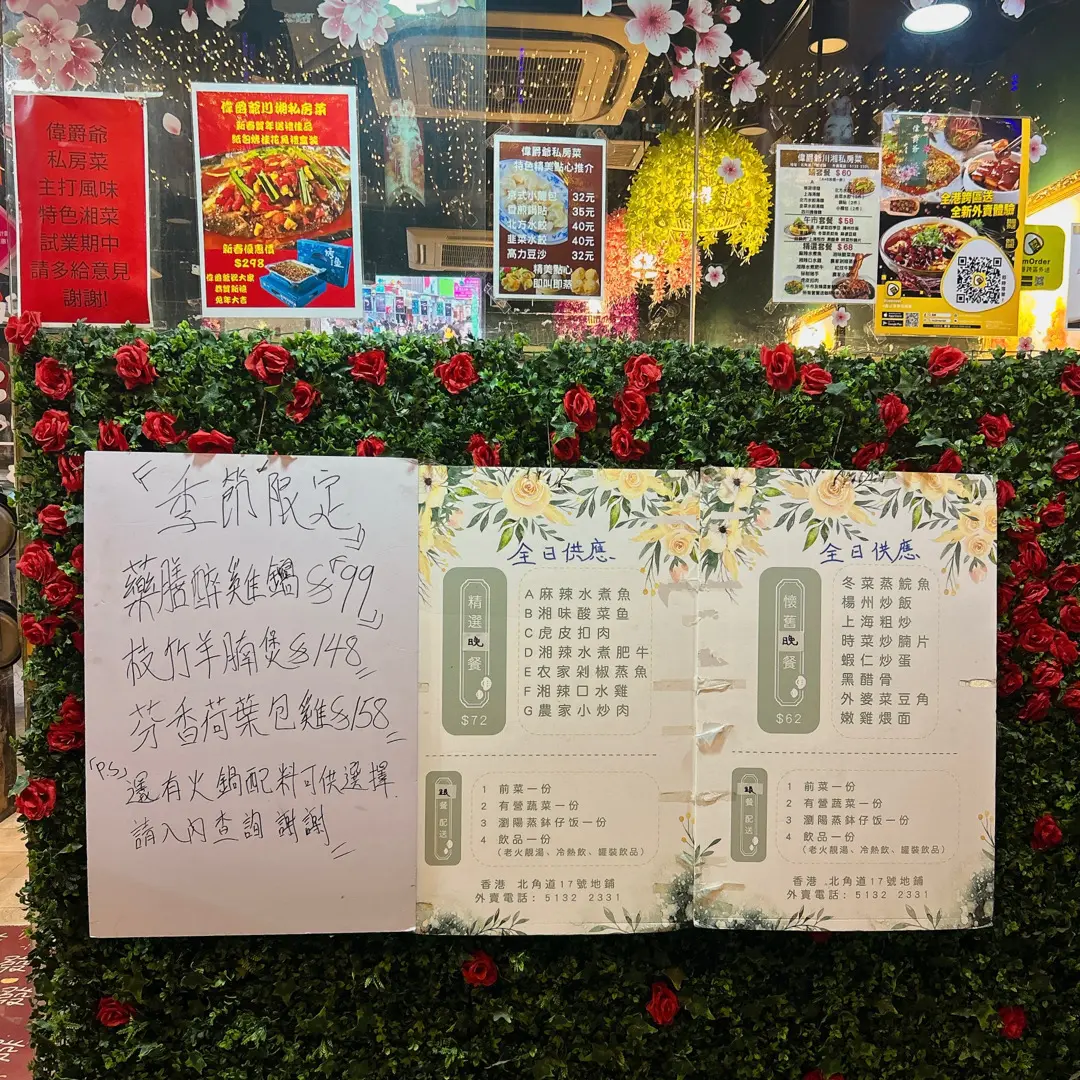 偉爵爺
私房菜
主打風味
特色湘菜
試業期中
請多給意見
謝謝!
偉爵爺川湘私房菜
新春賀年送禮佳品
新春優惠價
$298
恭賀新禧
兔年大吉
烤魚
偉爵爺私房菜
特色精美點心推介
32元
35元
北方水餃 40元
韭菜水餃 40元
高力豆沙 32元
精美點心
即叫即蒸
偉爵爺川湘私房菜
$60
午市套餐 $58
精選套餐 $68
偉爵爺
全港跨區送
全新外賣體驗
「季節限定」
藥膳醉雞鍋$「99」
枝竹羊腩煲$148
芬香荷葉包雞$158
「P.S」還有火鍋配料可供選擇
請入內查詢 謝謝
全日供應
精選晚餐
$72
A 麻辣水煮魚
B 湘味酸菜鱼
C 虎皮扣肉
D 湘辣水煮肥牛
E 农家剁椒蒸魚
F 湘辣口水雞
G 農家小炒肉
跟餐配送
1 前菜一份
2 有營蔬菜一份
3 瀏陽蒸鉢仔饭一份
4 飲品一份
(老火靚湯、冷熱飲、罐裝飲品)
香港 北角道17號地鋪
外賣電話: 5132 2331
全日供應
懷舊晚餐
$62
冬菜蒸鯇魚
楊州炒飯
上海粗炒
時菜炒腩片
蝦仁炒蛋
黑醋骨
外婆菜豆角
嫩雞煨面
跟餐配送
1 前菜一份
2 有營蔬菜一份
3 瀏陽蒸鉢仔饭一份
4 飲品一份
(老火靚湯、冷熱飲、罐裝飲品)
香港 北角道17號地鋪
外賣電話: 5132 2331